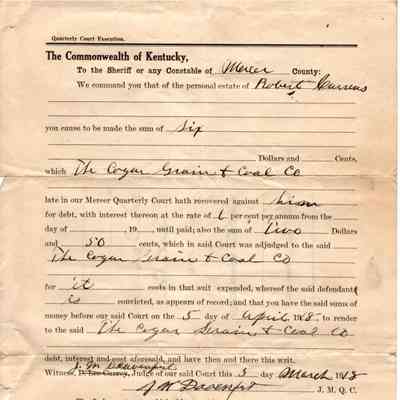 Quarterly Court Execution.
The Commonwealth of Kentucky,
To the Sheriff or any Constable of Mercer County:
We command you that of the personal estate of Robert
you cause to be made the sum of six
Dollars and Cents,
which The Cogar Grain & Coal Co
late in our Mercer Quarterly Court hath recovered against him
for debt, with interest thereon at the rate of 6 per cent per annum from the
day of , 19 until paid; also the sum of two Dollars
and 50 cents, which in said Court was adjudged to the said
The Cogar Grain & Coal Co
for it costs in that suit expended, whereof the said defendant
is convicted, as appears of record; and that you have the said sums of
money before our said Court on the 5 day of April 1918 to render
to the said The Cogar Grain & Coal Co
debt, interest and cost aforesaid, and have then and there this writ.
J. W. Davenport
Witness, D. Lee Currey, Judge of our said Court this 5 day March 1918
J W Davenport J. M. Q. C.